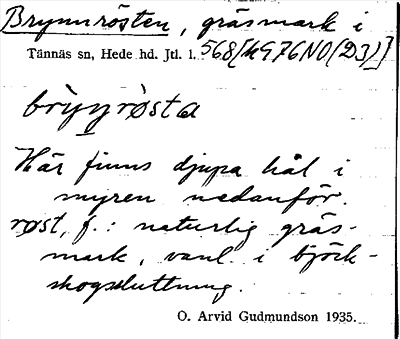 Brynnrösten, gräsmark i
Tännäs sn, Hede hd. Jtl. l. 568[h976N0(D3)]
brỳn̲rø̀sta
Här finns djupa hål i
myren nedanför.
røst, f.: naturlig gräs-
mark, vanl. i björk-
skogssluttning.
O. Arvid Gudmundson 1935.